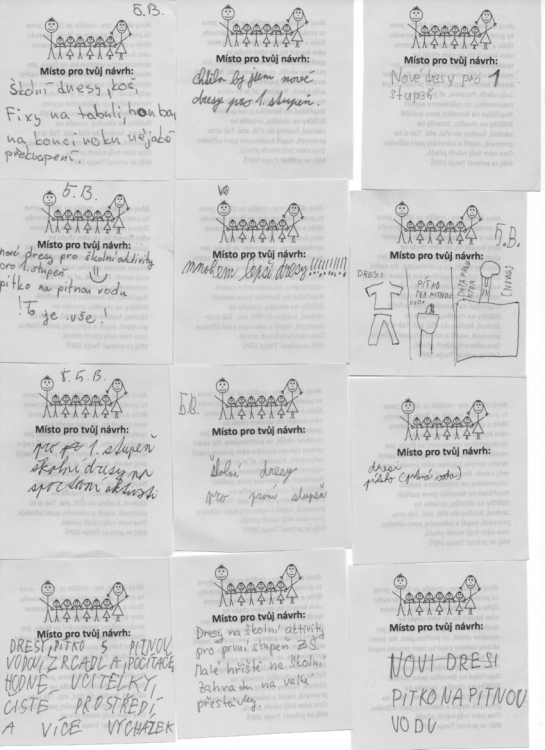 5.B.
Místo pro tvůj návrh:
Školní dresy, koš,
Fixy na tabuli, houba
na konci roku nějaké
překvapení.
Místo pro tvůj návrh:
chtěla by jsem nové
dresy pro 1. stupeň.
Místo pro tvůj návrh:
Nové dresy pro 1
stupeň
5.B.
Místo pro tvůj návrh:
nové dresy pro školní aktivity
pro 1. stupeň
pítko na pitnou vodu
!To je vše!
Místo pro tvůj návrh:
mnohem lepší dresy!!!!!!!!!
5.B.
Místo pro tvůj návrh:
DRESI
PÍTKO
NA PITNOU
VODU
5.B.
Místo pro tvůj návrh:
pro 1. stupeň
školní dresy na
sportovní aktivity
5.B.
Místo pro tvůj návrh:
školní dresy
pro první stupeň
Místo pro tvůj návrh:
dresi
pítko (pitná voda)
Místo pro tvůj návrh:
DRESI, PITKO S PITNOU
VODOU, ZRCADLA, POČITAČE,
HODNÉ UČITELKY,
ČISTÉ PROSTŘEDÍ
A VÍCE VYCHÁZEK
Místo pro tvůj návrh:
Dresy na školní aktivity
pro první stupeň ZŠ.
Malé hřiště na školní
zahradu na velké
přestávky.
Místo pro tvůj návrh:
NOVI DRESI
PITKO NA PITNOU
VODU